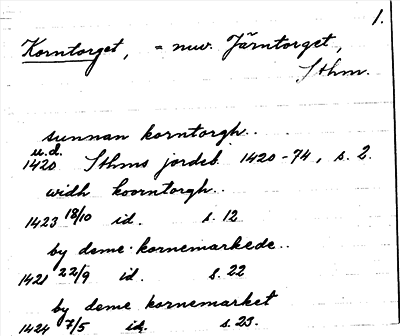 1.
Korntorget, = nuv. Järntorget,
Sthm.
sunnan korntorgh..
u.d.
1420 Sthms jordeb. 1420-74, s. 2.
widh koorntorgh..
1423 18/10 id. s. 12
by deme kornemarkede..
1421 22/9 id. s. 22
by deme kornemarket
1424 7/5 id. s. 23.